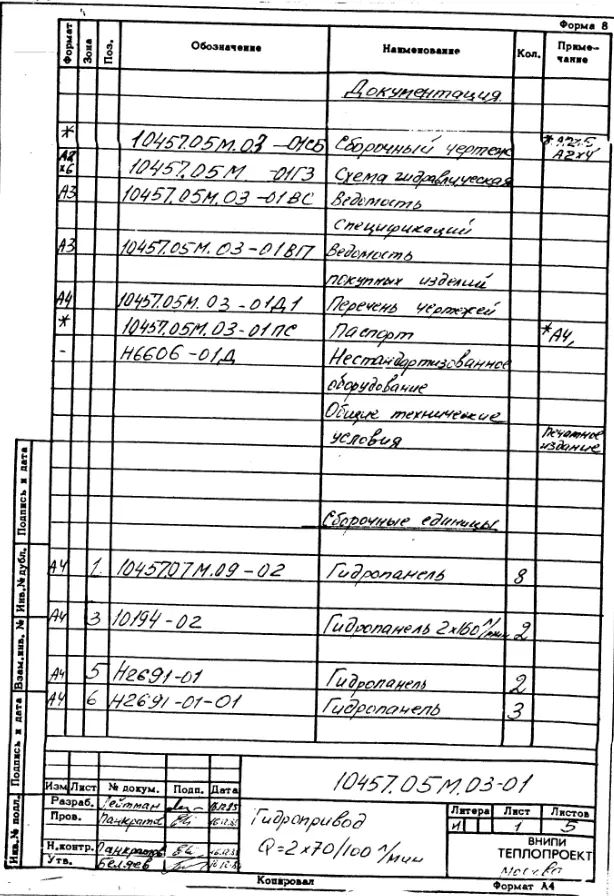 Форма 8
Формат Зона Поз. Обозначение Наименование Кол. Приме-
чание
Документация
* 10457.05М.03-01СБ Сборочный чертеж *
А2х4
А2
х6 10457.05М -01ГЗ Схема гидравлическая
А3 10457.05М.03-01ВС Ведомость
спецификаций
А3 10457.05М.03-01ВП Ведомость
покупных изделий
А4 10457.05М.03-01Д1 Перечень чертежей
* 10457.05М.03-01ПС Паспорт *А4,
- Н6606-01Д Нестандартизованное
оборудование
Общие технические
условия Печатное
издание
Сборочные единицы
А4 1 10457.07М.09-02 Гидропанель 8
А4 3 10194-02 Гидропанель 2х160 л/мин 2
А4 5 Н2691-01 Гидропанель 2
А4 6 Н2691-01-01 Гидропанель 3
Инв.№ подл. Подпись и дата Взам.инв. № Инв.№ дубл. Подпись и дата
10457.05М.03-01
Изм Лист № докум. Подп. Дата
Разраб. Гейтман
Пров. Панкратов
Н.контр. Панкратов
Утв. Беляев
Гидропривод
Q=2х70/100 л/мин
Литера Лист Листов
И 1 5
ВНИПИ
ТЕПЛОПРОЕКТ
Москва
Копировал Формат А4